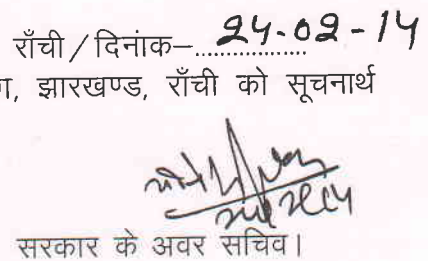 राँची/दिनांक–..................24-02-14
ग, झारखण्ड, राँची को सूचनार्थ
सरकार के अवर सचिव।